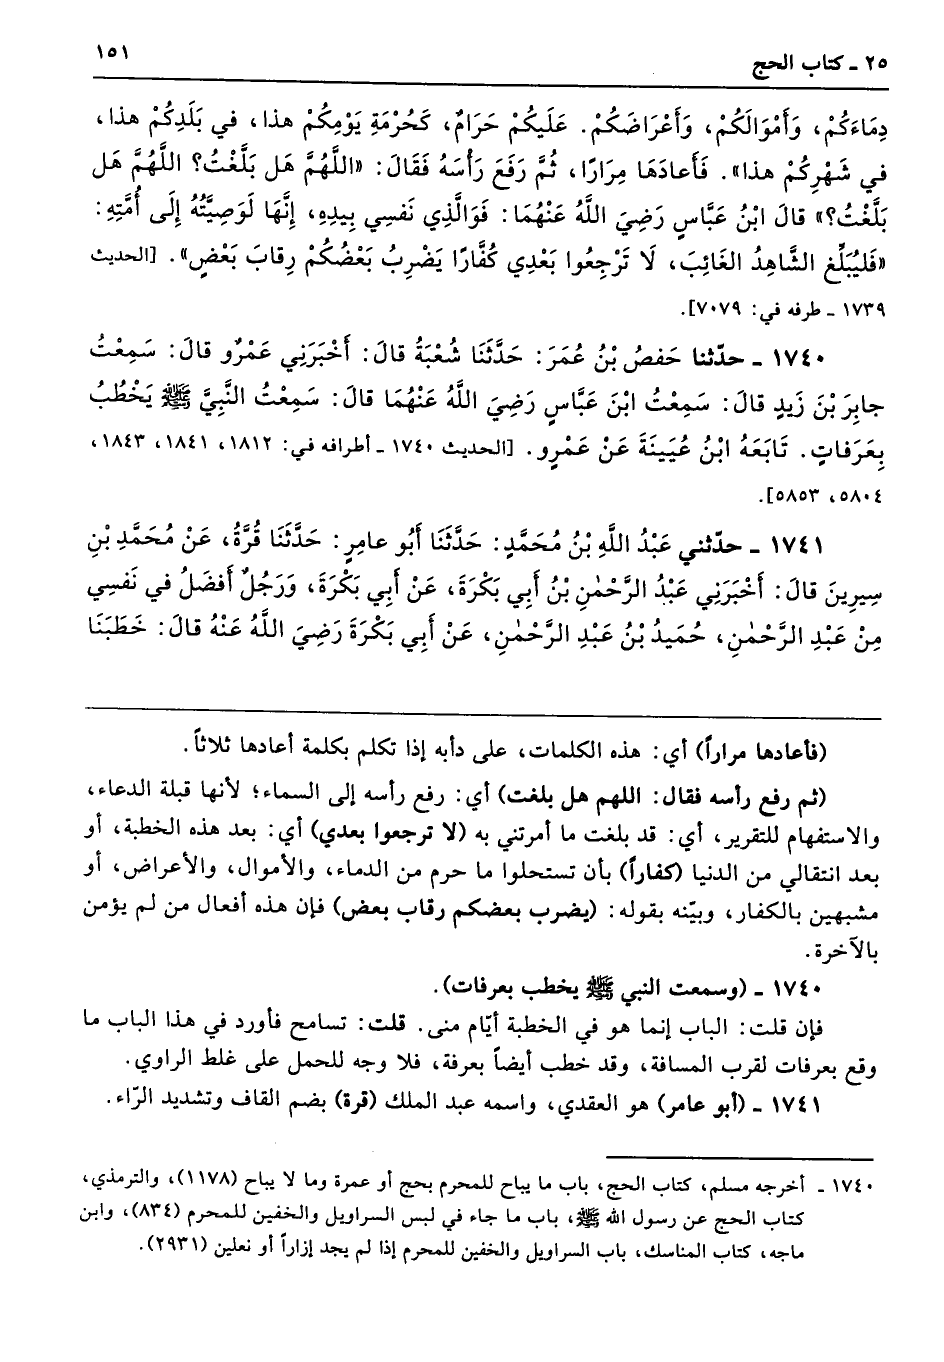 ٢٥ ـ كتاب الحج
١٥١
دِمَاءَكُمْ، وَأَمْوَالَكُمْ، وَأَعْرَاضَكُمْ. عَلَيكُمْ حَرَامٌ، كَحُرْمَةِ يَوْمِكُمْ هذا، في بَلَدِكُمْ هذا،
في شَهْرِكُمْ هذا». فَأَعادَهَا مِرَارًا، ثُمَّ رَفَعَ رَأْسَهُ فَقَالَ: «اللَّهُمَّ هَل بَلَّغْتُ؟ اللَّهُمَّ هَل
بَلَّغْتُ؟» قالَ ابْنُ عَبَّاسٍ رَضِيَ اللَّهُ عَنْهُمَا: فَوَالَّذِي نَفسِي بِيدِهِ، إِنَّهَا لَوَصِيَّتُهُ إِلَى أُمَّتِهِ:
«فَليُبَلِّغِ الشَّاهِدُ الغَائِبَ، لَا تَرْجِعُوا بَعْدِي كُفَّارًا يَضْرِبُ بَعْضُكُمْ رِقابَ بَعْضٍ». [الحديث
١٧٣٩ ـ طرفه في: ٧٠٧٩].
١٧٤٠ ـ حدّثنا حَفصُ بْنُ عُمَرَ: حَدَّثَنَا شُعْبَةُ قالَ: أَخْبَرَنِي عَمْرٌو قالَ: سَمِعْتُ
جابِرَ بْنَ زَيدٍ قالَ: سَمِعْتُ ابْنَ عَبَّاسٍ رَضِيَ اللَّهُ عَنْهُمَا قالَ: سَمِعْتُ النَّبِيَّ ﷺ يَخْطُبُ
بِعَرَفاتٍ. تَابَعَهُ ابْنُ عُيَينَةَ عَنْ عَمْرٍو. [الحديث ١٧٤٠ ـ أطرافه في: ١٨١٢، ١٨٤١، ١٨٤٣،
٥٨٠٤، ٥٨٥٣].
١٧٤١ ـ حدّثني عَبْدُ اللَّهِ بْنُ مُحَمَّدٍ: حَدَّثَنَا أَبُو عامِرٍ: حَدَّثَنَا قُرَّةُ، عَنْ مُحَمَّدِ بْنِ
سِيرِينَ قالَ: أَخْبَرَنِي عَبْدُ الرَّحْمٰنِ بْنُ أَبِي بَكْرَةَ، عَنْ أَبِي بَكْرَةَ، وَرَجُلٌ أَفضَلُ في نَفسِي
مِنْ عَبْدِ الرَّحْمٰنِ، حُمَيدُ بْنُ عَبْدِ الرَّحْمٰنِ، عَنْ أَبِي بَكْرَةَ رَضِيَ اللَّهُ عَنْهُ قالَ: خَطَبَنَا
(فأعادها مراراً) أي: هذه الكلمات، على دأبه إذا تكلم بكلمة أعادها ثلاثاً.
(ثم رفع رأسه فقال: اللهم هل بلغت) أي: رفع رأسه إلى السماء؛ لأنها قبلة الدعاء،
والاستفهام للتقرير، أي: قد بلغت ما أمرتني به (لا ترجعوا بعدي) أي: بعد هذه الخطبة، أو
بعد انتقالي من الدنيا (كفاراً) بأن تستحلوا ما حرم من الدماء، والأموال، والأعراض، أو
مشبهين بالكفار، وبيّنه بقوله: (يضرب بعضكم رقاب بعض) فإن هذه أفعال من لم يؤمن
بالآخرة.
١٧٤٠ ـ (وسمعت النبي ﷺ يخطب بعرفات).
فإن قلت: الباب إنما هو في الخطبة أيّام منى. قلت: تسامح فأورد في هذا الباب ما
وقع بعرفات لقرب المسافة، وقد خطب أيضاً بعرفة، فلا وجه للحمل على غلط الراوي.
١٧٤١ ـ (أبو عامر) هو العقدي، واسمه عبد الملك (قرة) بضم القاف وتشديد الرّاء.
١٧٤٠ ـ أخرجه مسلم، كتاب الحج، باب ما يباح للمحرم بحج أو عمرة وما لا يباح (١١٧٨)، والترمذي،
كتاب الحج عن رسول الله ﷺ، باب ما جاء في لبس السراويل والخفين للمحرم (٨٣٤)، وابن
ماجه، كتاب المناسك، باب السراويل والخفين للمحرم إذا لم يجد إزاراً أو نعلين (٢٩٣١).